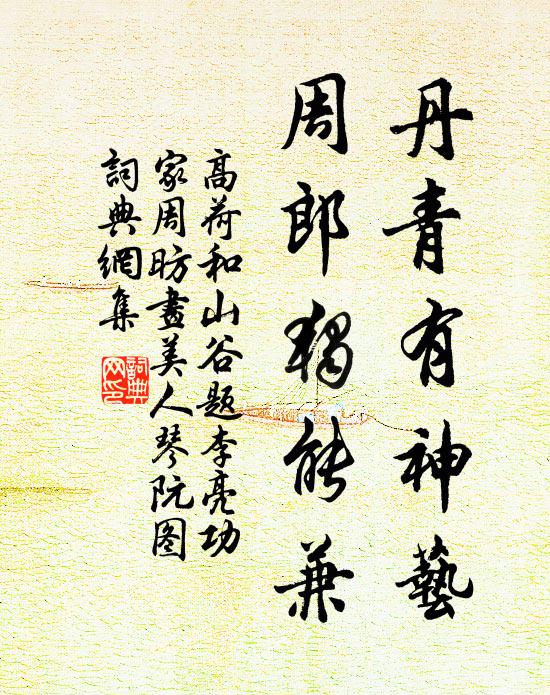 丹青有神藝
周郎獨能兼
高荷和山谷題李亮功
家周昉畫美人琴阮图
詞典網集
詞典网印